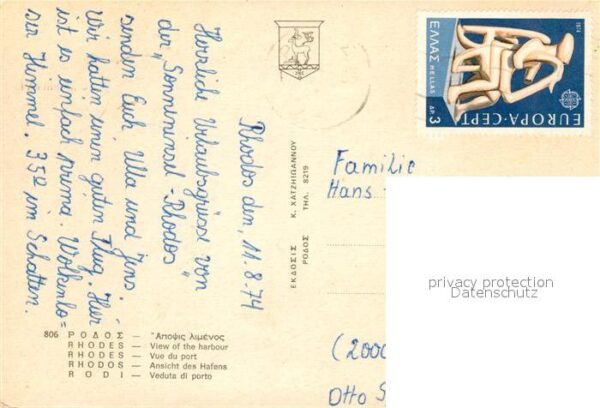 Rhodos den, 11.8.74
Herrliche Urlaubsgrüsse von
der "Sonneninsel-Rhodos"
senden Euch Ulla und Jens.
Wir hatten einen guten Flug. Hier
ist es einfach prima. Wolkenlo=
ser Himmel. 35° im Schatten.
806 ΡΟΔΟΣ — Ἄποψις λιμένος
RHODES — View of the harbour
RHODES — Vue du port
RHODOS — Ansicht des Hafens
RODI — Veduta di porto
ΕΚΔΟΣΙΣ Κ. ΧΑΤΖΗΙΩΑΝΝΟΥ
ΡΟΔΟΣ ΤΗΛ. 8219
1974
ΕΛΛΑΣ HELLAS ΔΡ 3
EUROPA·CEPT
Familie
Hans
(2000
Otto S
privacy protection
Datenschutz